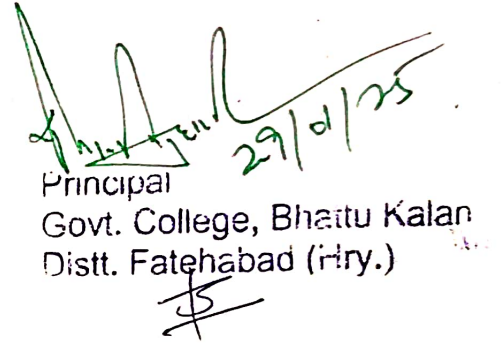 29/01/25
Principal
Govt. College, Bhattu Kalan
Distt. Fatehabad (Hry.)